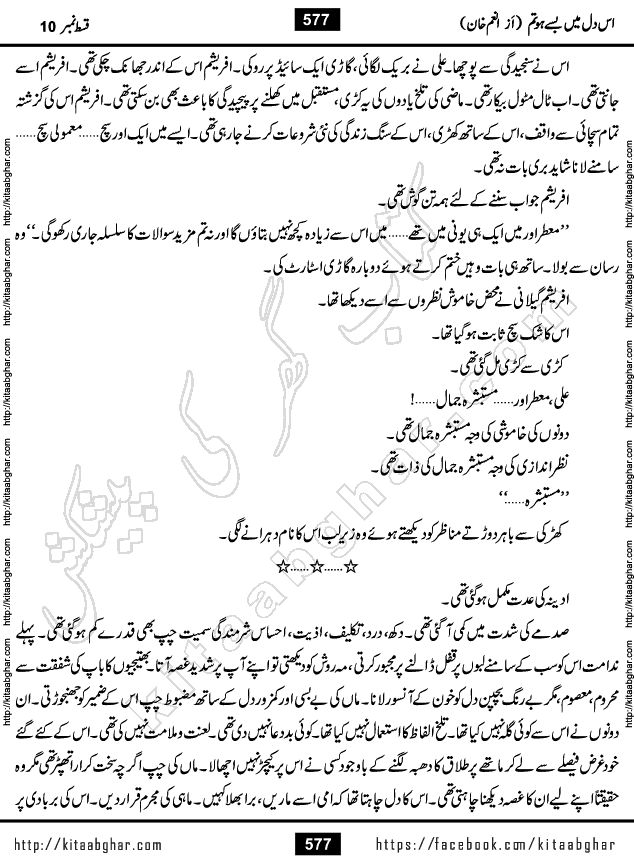 اس دل میں بسے ہو تم (از انعم خان)
577
قسط نمبر 10
اس نے سنجیدگی سے پوچھا۔ علی نے بریک لگائی، گاڑی ایک سائیڈ پر روکی۔ افریشم اس کے اندر جھانک چکی تھی۔ افریشم اسے
جانتی تھی۔ اب ٹال مٹول بیکار تھی۔ ماضی کی تلخ یادوں کی یہ کڑی، مستقبل میں کھلنے پر پیچیدگی کا باعث بھی بن سکتی تھی۔ افریشم اس کی گزشتہ
تمام سچائی سے واقف، اس کے ساتھ کھڑی، اس کے سنگ زندگی کی نئی شروعات کرنے جا رہی تھی۔ ایسے میں ایک اور سچ...... معمولی سچ......
سامنے لانا شاید بری بات نہ تھی۔
افریشم جواب سننے کے لئے ہمہ تن گوش تھی۔
”معطر اور میں ایک ہی یونی میں تھے...... میں اس سے زیادہ کچھ نہیں بتاؤں گا اور نہ تم مزید سوالات کا سلسلہ جاری رکھو گی۔“ وہ
رسان سے بولا۔ ساتھ ہی بات وہیں ختم کرتے ہوئے دوبارہ گاڑی اسٹارٹ کی۔
افریشم گیلانی نے محض خاموش نظروں سے اسے دیکھا تھا۔
اس کا شک سچ ثابت ہو گیا تھا۔
کڑی سے کڑی مل گئی تھی۔
علی، معطر اور...... مستبشرہ جمال......!
دونوں کی خاموشی کی وجہ مستبشرہ جمال تھی۔
نظر اندازی کی وجہ مستبشرہ جمال کی ذات تھی۔
”مستبشرہ......“
کھڑکی سے باہر دوڑتے مناظر کو دیکھتے ہوئے وہ زیرلب اس کا نام دہرانے لگی۔
☆......☆......☆
ادینہ کی عدت مکمل ہو گئی تھی۔
صدمے کی شدت میں کمی آ گئی تھی۔ دکھ، درد، تکلیف، اذیت، احساس شرمندگی سمیت چپ بھی قدرے کم ہو گئی تھی۔ پہلے
ندامت اس کو سب کے سامنے لبوں پر قفل ڈالنے پر مجبور کرتی، مہ روش کو دیکھتی تو اپنے آپ پر شدید غصہ آتا۔ بھتیجیوں کا باپ کی شفقت سے
محروم، معصوم، مگر بے رنگ بچپن دل کو خون کے آنسو رلاتا۔ ماں کی بے بسی اور کمزور دل کے ساتھ مضبوط چپ اس کے ضمیر کو جھنجوڑتی۔ ان
دونوں نے اس سے کوئی گلہ نہیں کیا تھا۔ تلخ الفاظ کا استعمال نہیں کیا تھا۔ کوئی بددعا نہیں دی تھی۔ لعنت و ملامت نہیں کی تھی۔ اس کے کئے گئے
خود غرض فیصلے سے لے کر ماتھے پر طلاق کا دھبہ لگنے کے باوجود کسی نے اس پر کیچڑ نہیں اچھالا۔ ماں کی چپ اگرچہ سخت کرارا تھپڑ تھی مگر وہ
حقیقتاً اپنے لیے ان کا غصہ دیکھنا چاہتی تھی۔ اس کا دل چاہتا تھا کہ امی اسے ماریں، برا بھلا کہیں۔ ماہی کی مجرم قرار دیں۔ اس کی بربادی پر
کتاب گھر کی پیشکش
kitaabghar.com
http://kitaabghar.com
http://kitaabghar.com
http://kitaabghar.com
http://kitaabghar.com
http://kitaabghar.com
http://kitaabghar.com
http://kitaabghar.com
http://kitaabghar.com
http://kitaabghar.com
http://kitaabghar.com
http://kitaabghar.com
http://kitaabghar.com
http://kitaabghar.com
577
https://facebook.com/kitaabghar